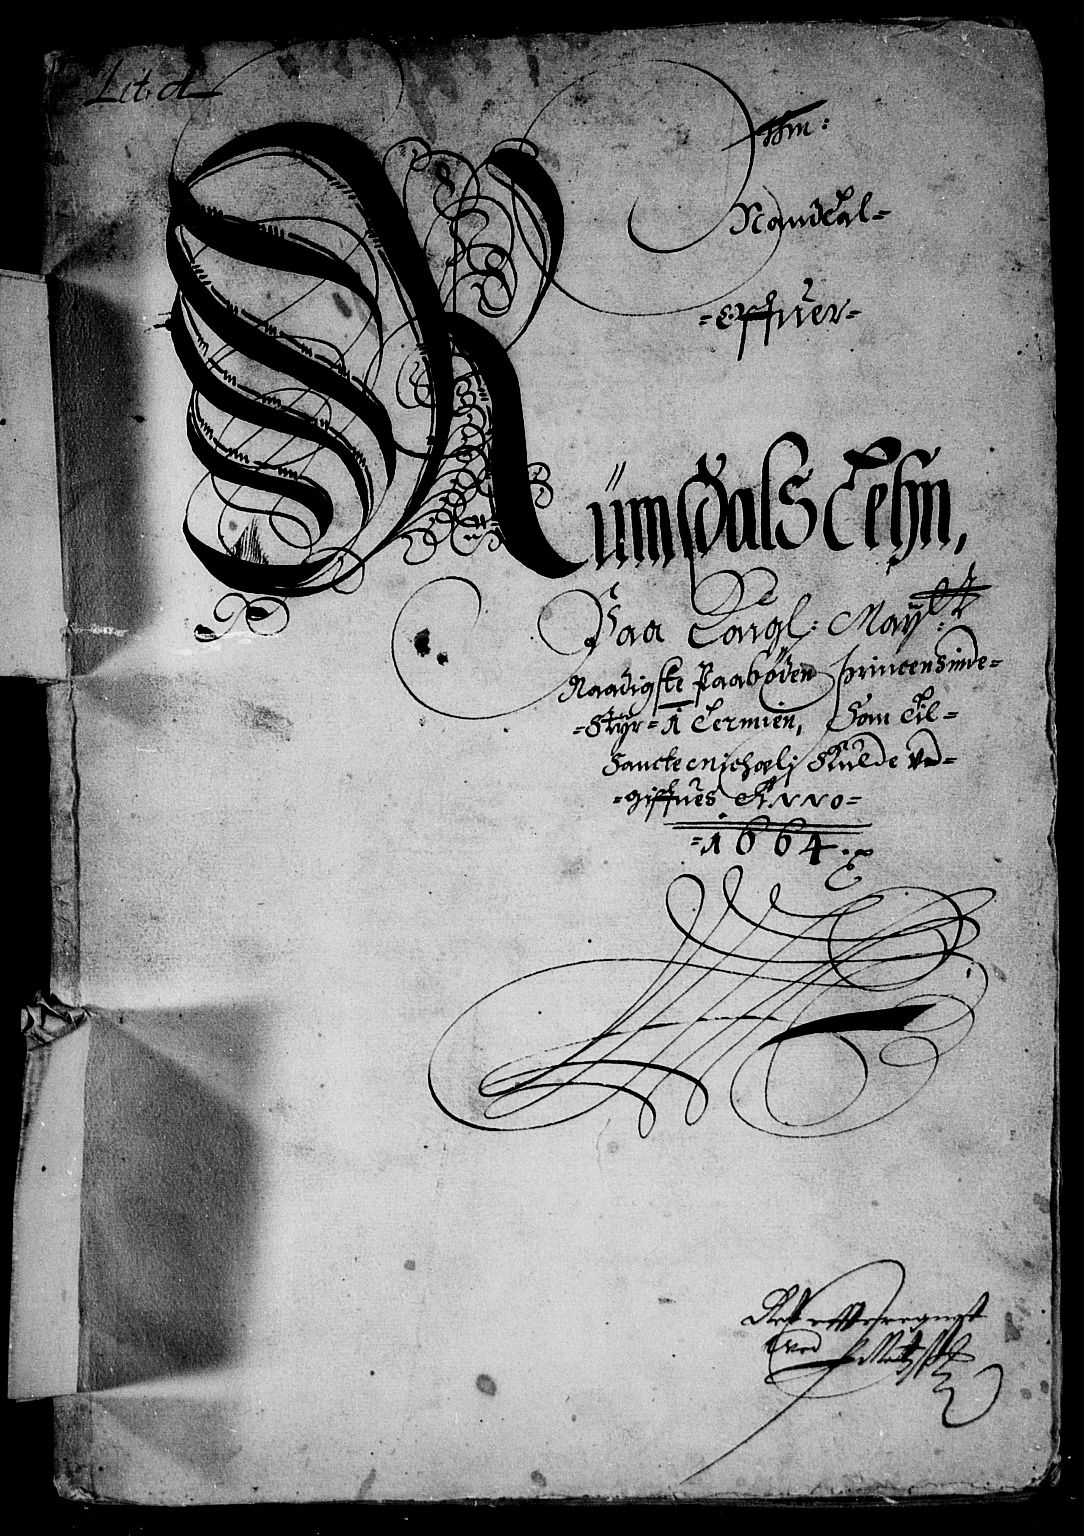 Lit: A
Thm:
Mandtal-
-offuer-
Rümsdals Lehn,
Paa Kongl: Maÿtt:
Naadigste Paabøden Princensinde-
-Stÿr- i Termien, Som Til-
Sancte michæli Skulde vd-
-giffues Anno-
-1664.